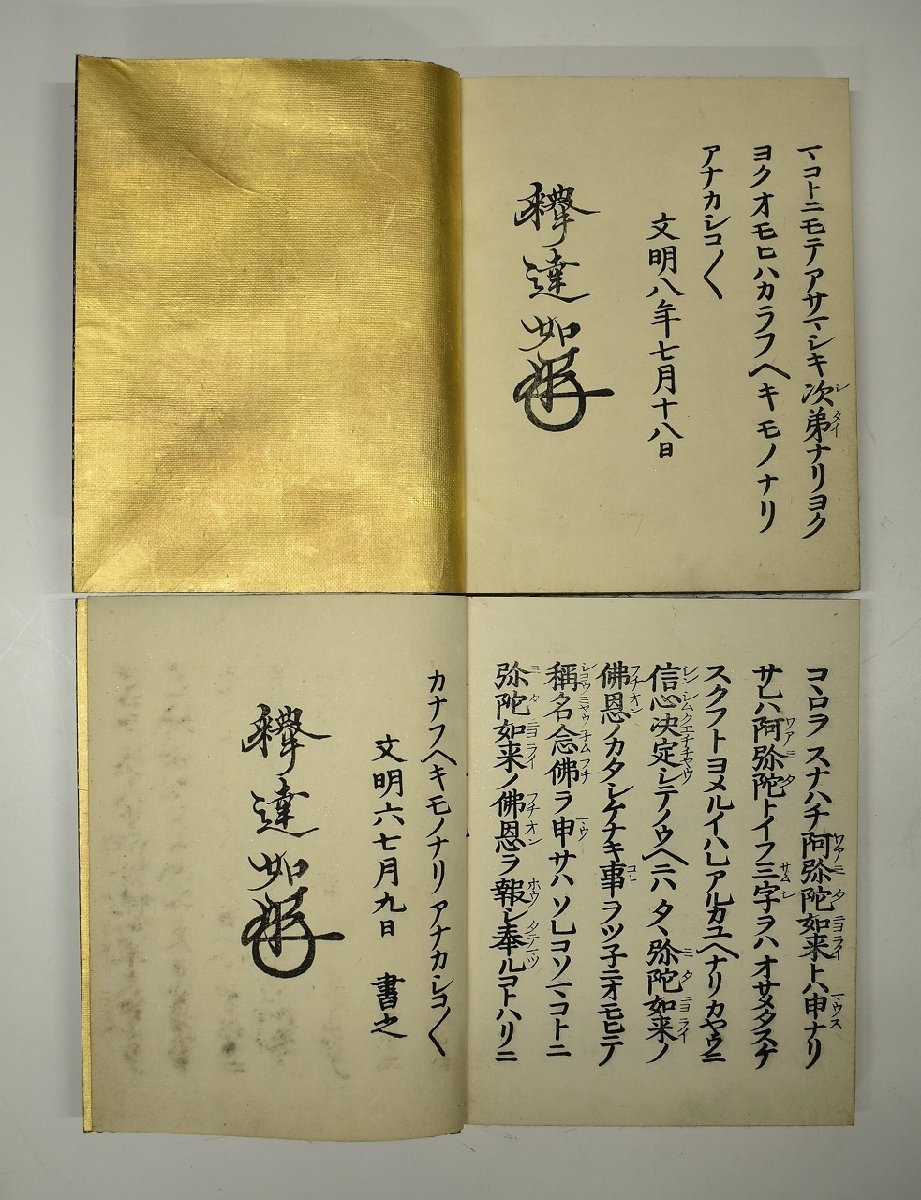 マコトニモテアサマシキ次弟ナリヨク
ヨクオモヒハカラフヘキモノナリ
アナカシコ〱
文明八年七月十八日
釋達如
コヽロヲスナハチ阿弥陀如来トハ申ナリ
サレハ阿弥陀トイフ三字ヲハオサメタスケ
スクフトヨメルイハレアルカユヘナリカヤウニ
信心决定シテノウヘニハタヽ弥陀如来ノ
佛恩ノカタシケナキ事ヲツ子ニオモヒテ
稱名念佛ヲ申サハソレコソマコトニ
弥陀如来ノ佛恩ヲ報シ奉ルコトハリニ
カナフヘキモノナリアナカシコ〱
文明六七月九日 書之
釋達如